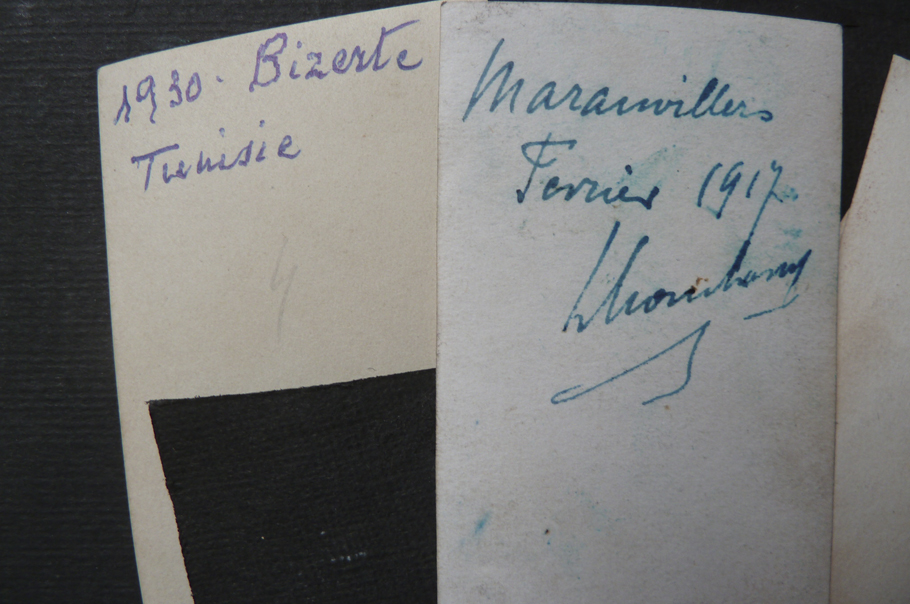 1930. Bizerte
Tunisie
4
Maranvillers
Fevrier 1917